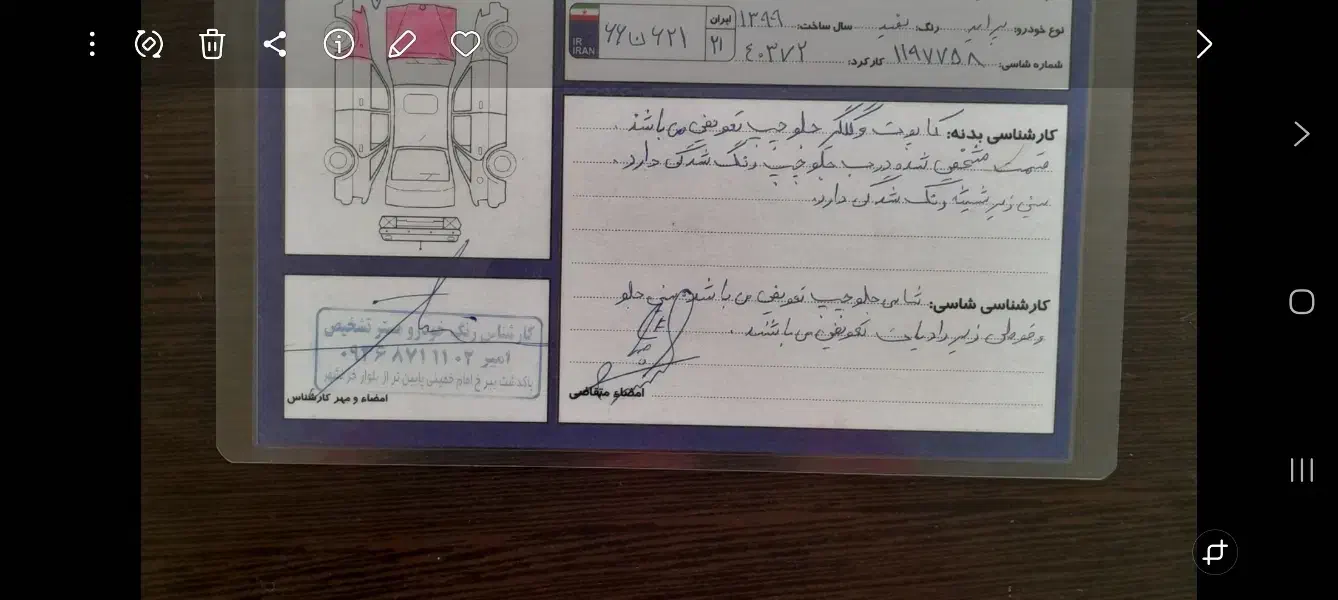 نوع خودرو: پراید رنگ: سفید سال ساخت: ۱۳۹۹
ایران ۲۱ ۶۶ن۶۲۱
I.R. IRAN
شماره شاسی: ۱۱۹۷۷۵۸ کارکرد: ۴۰۳۷۲
کارشناسی بدنه: کاپوت و گلگیر جلو چپ تعویض می باشد.
قسمت مشخص شده درب جلو چپ رنگ شدگی دارد.
سینی زیر شیشه رنگ شدگی دارد.
کارشناسی شاسی: شاسی جلو چپ تعویض می باشد. سینی جلو
و زیر رادیات تعویض می باشند.
امضاء متقاضی
کارشناس رنگ خودرو تشخیص
امیر ۰۹۳۶۸۷۱۱۱۰۲
پاکدشت خ امام خمینی پایین تر از بلوار
امضاء و مهر کارشناس